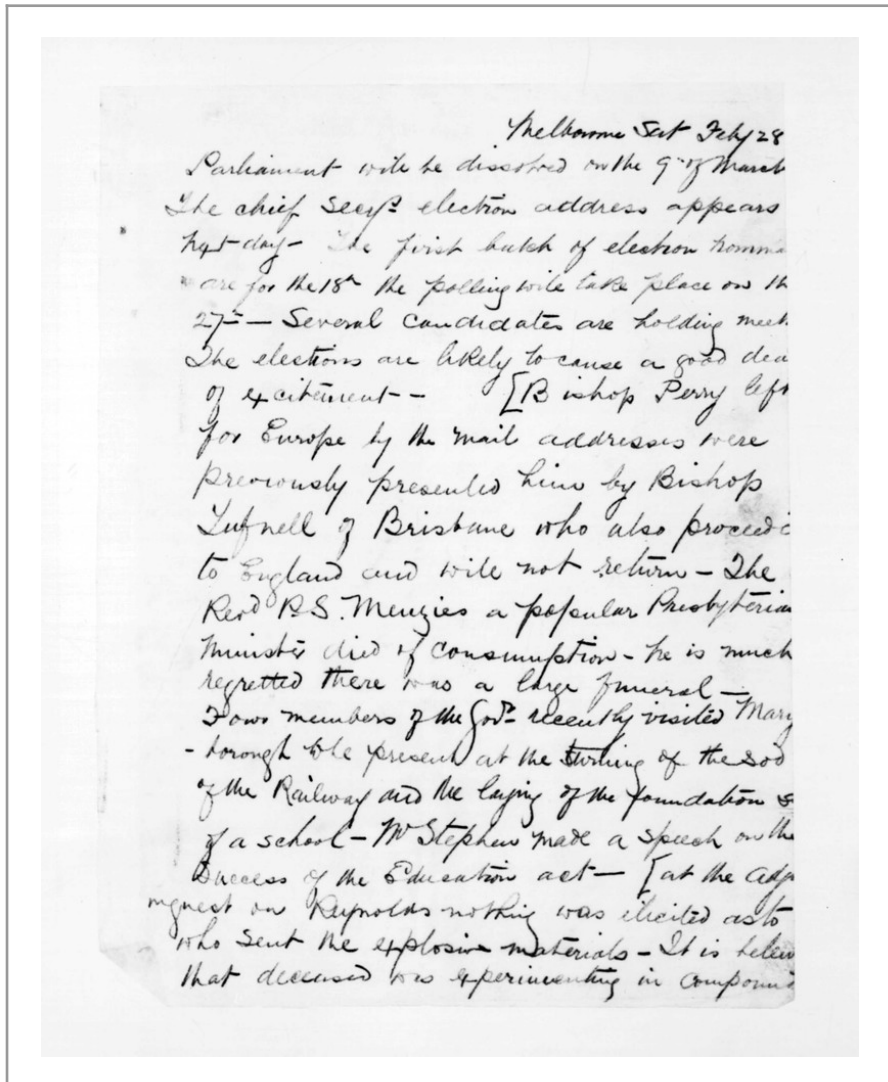 Melbourne Sat Feby 28
Parliament will be dissolved on the 9th of March
The chief Secys election address appears
next day - The first batch of election nomina
are for the 18th the polling will take place on th
27th - Several candidates are holding meet
The elections are likely to cause a good dea
of excitement - - [Bishop Perry left
for Europe by the mail addresses were
previously presented him by Bishop
Tufnell of Brisbane who also proceed
to England and will not return - The
Revd P.S. Menzies a popular Presbyterian
Minister died of consumption - he is much
regretted there was a large funeral -
Four members of the Govt recently visited Mary
- borough to be present at the turning of the sod
of the Railway and the laying of the foundation s
of a school - Mr Stephen made a speech on the
Success of the Education act - [at the adj
inquest on Reynolds nothing was elicited as to
who sent the explosive materials - It is believ
that deceased was experimenting in compound